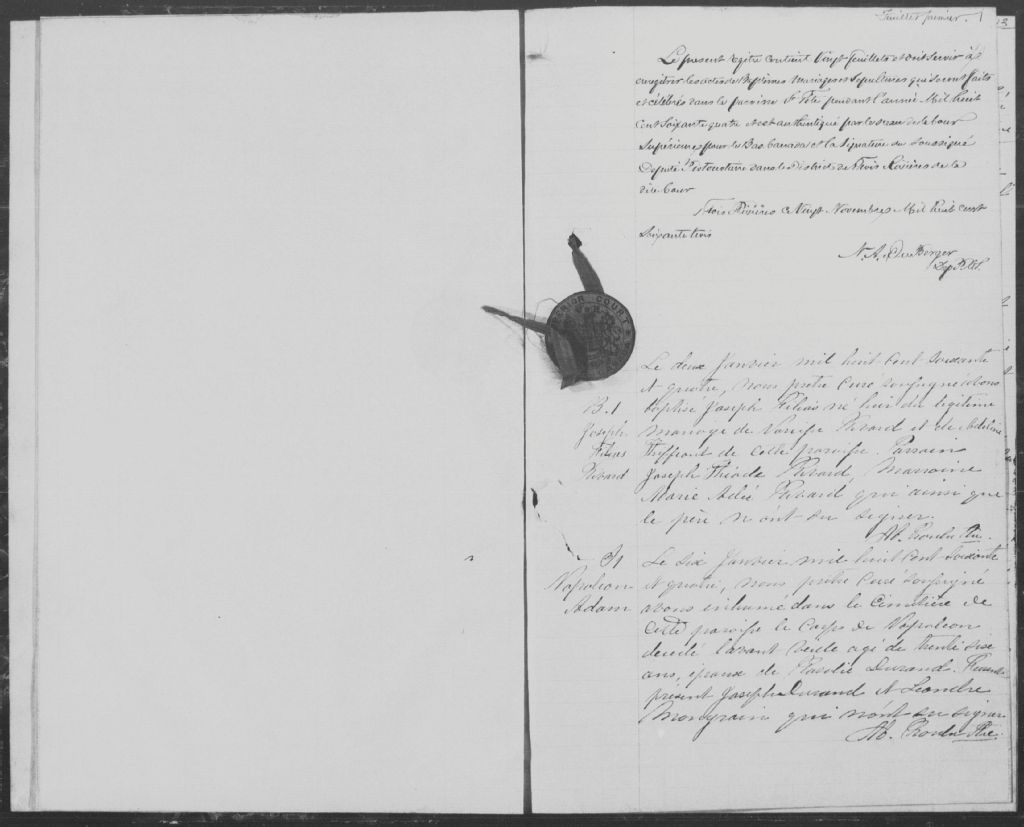 Feuillet premier. 1
Le présent registre contient Vingt feuillets et doit servir à
enregistrer les actes de Baptêmes Mariages et Sépultures qui seront faits
et célébrés dans la paroisse St pendant l'année Mil huit
Cent Soixante quatre et est authentiqué par le sceau de la Cour
Supérieure pour le Bas Canada et la signature du Soussigné
Député Protonotaire dans le District de Trois Rivières de la
dite Cour
Trois Rivières ce Vingt Novembre Mil huit cent
Soixante trois
N. A.
Dep
SUPERIOR COURT
Le deux Janvier mil huit Cent Soixante
et quatre, nous prêtre Curé soussigné avons
B. 1
baptisé Joseph né hier du légitime
Joseph
mariage de et de Adeline
de cette paroisse. Parrain
Joseph Marraine
Marie qui ainsi que
le père n'ont su signer.
Ptre.
S 1
Le Six Janvier mil huit Cent Soixante
Napoleon
et quatre, nous prêtre Curé soussigné
Adam
avons inhumé dans le Cimetière de
Cette paroisse le Corps de Napoleon
decedé l'avant veille agé de trente six
ans, époux de Durand. Furent
présent Joseph Durand et Leandre
Mongrain qui n'ont su signer
Ptre.